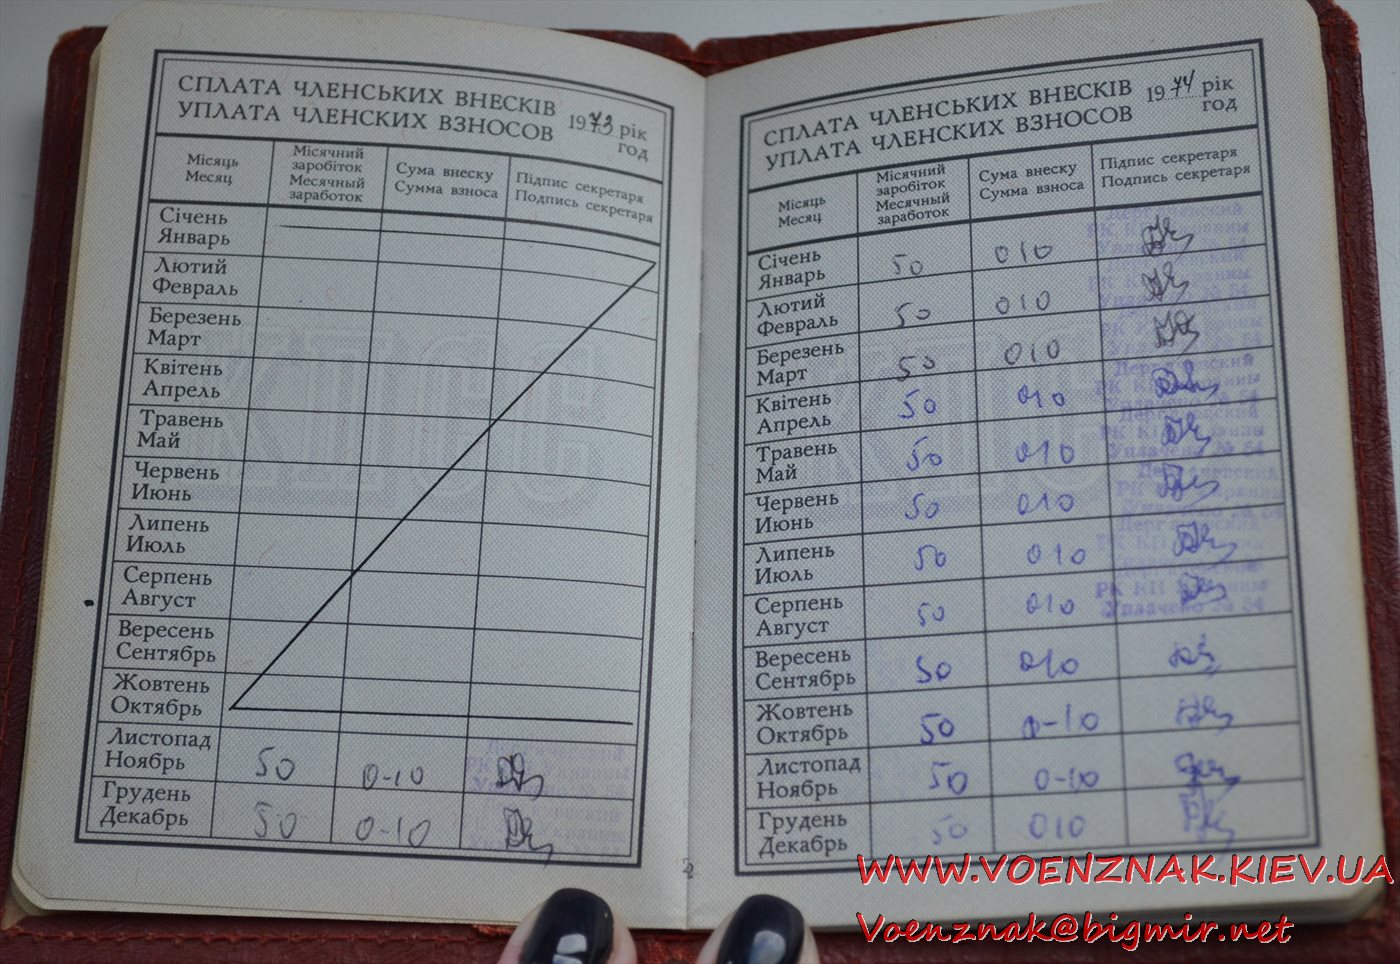 СПЛАТА ЧЛЕНСЬКИХ ВНЕСКІВ 1973 рік
УПЛАТА ЧЛЕНСКИХ ВЗНОСОВ год
Місяць
Месяц
Місячний
заробіток
Месячный
заработок
Сума внеску
Сумма взноса
Підпис секретаря
Подпись секретаря
Січень
Январь
Лютий
Февраль
Березень
Март
Квітень
Апрель
Травень
Май
Червень
Июнь
Липень
Июль
Серпень
Август
Вересень
Сентябрь
Жовтень
Октябрь
Листопад
Ноябрь 50 0-10
Грудень
Декабрь 50 0-10
СПЛАТА ЧЛЕНСЬКИХ ВНЕСКІВ 1974 рік
УПЛАТА ЧЛЕНСКИХ ВЗНОСОВ год
Місяць
Месяц
Місячний
заробіток
Месячный
заработок
Сума внеску
Сумма взноса
Підпис секретаря
Подпись секретаря
Січень
Январь 50 010
Лютий
Февраль 50 010
Березень
Март 50 010
Квітень
Апрель 50 010
Травень
Май 50 010
Червень
Июнь 50 010
Липень
Июль 50 010
Серпень
Август 50 010
РК КП Украины
Уплачено № 54
Вересень
Сентябрь 50 010
Жовтень
Октябрь 50 0-10
Листопад
Ноябрь 50 0-10
Грудень
Декабрь 50 010
WWW.VOENZNAK.KIEV.UA
Voenznak@bigmir.net